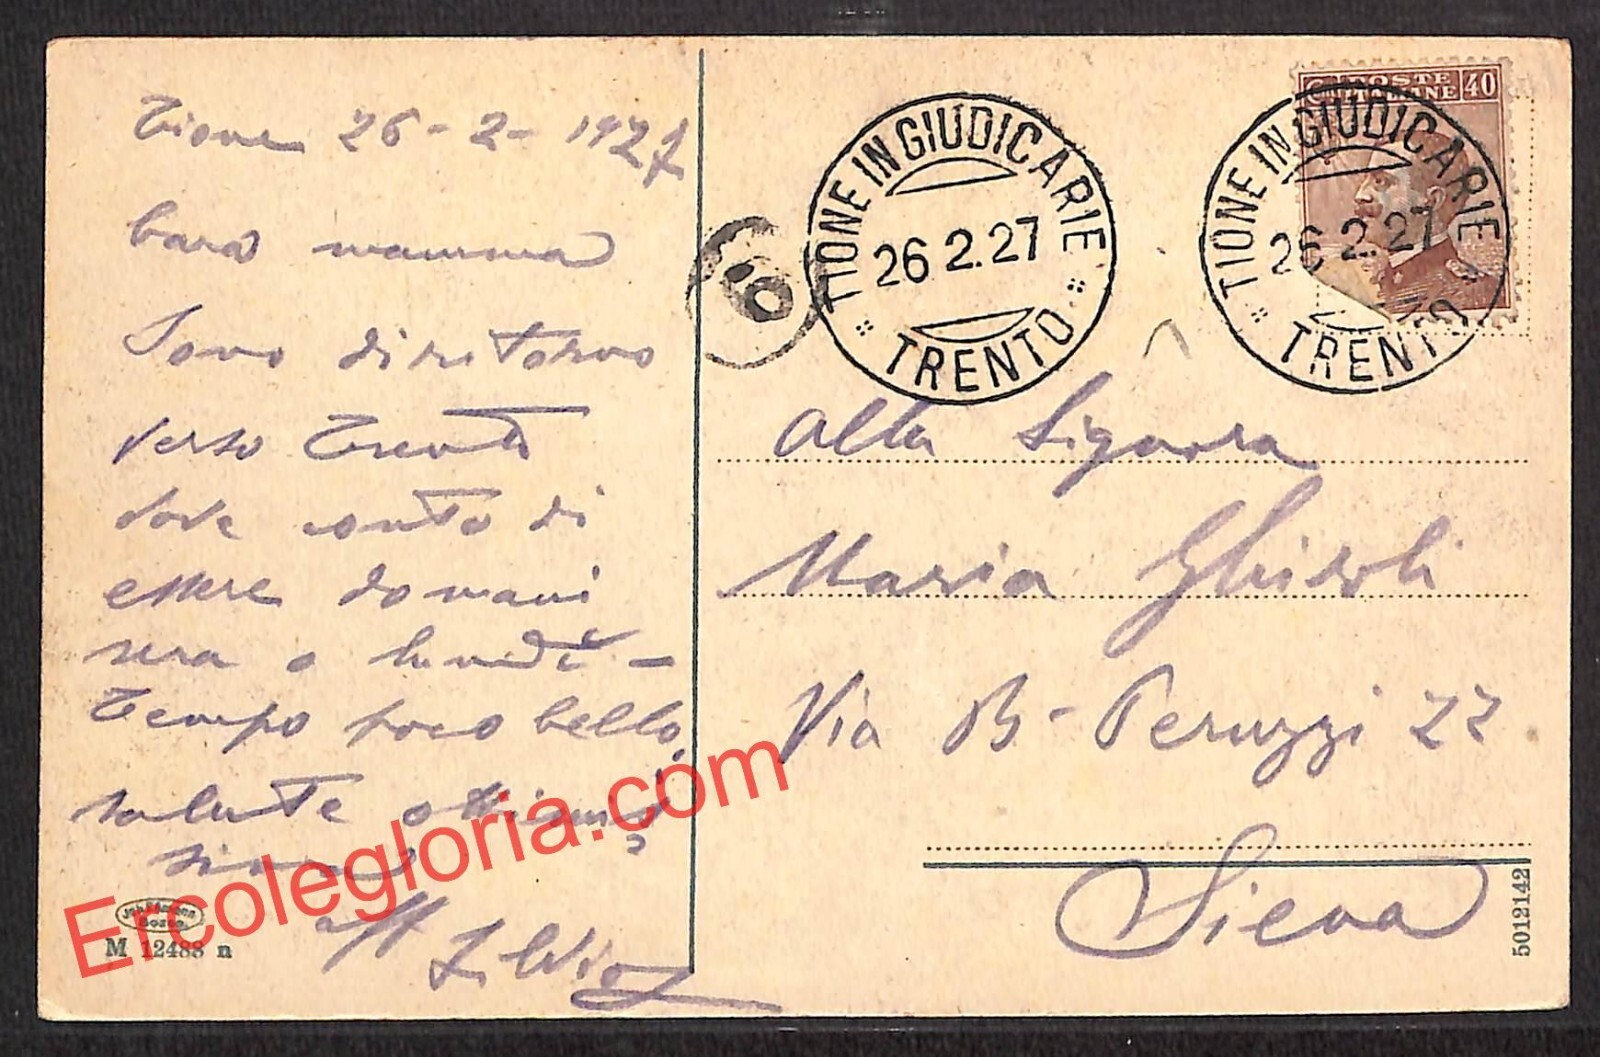 Tione 26-2-1927
Cara mamma
Sono di ritorno
verso Trento
dove conto di
essere domani
sera o lunedì -
Tempo poco bello,
salute ottima
aff Silvio
Joh. Amonn
Bozen
M 12488 n
10
TIONE IN GIUDICARIE
26.2.27
TRENTO
TIONE IN GIUDICARIE
26.2.27
TRENTO
POSTE
ITALIANE
C. 40
Alla Signora
Maria Ghisoli
Via B- Peruzzi 22
Siena
5012142
Ercolegloria.com